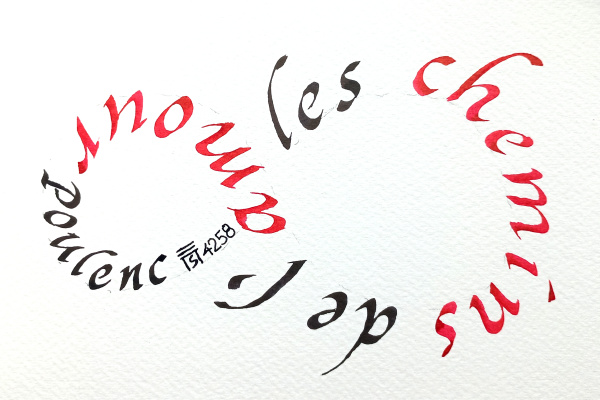 les chemins de l'amour
Poulenc
4258